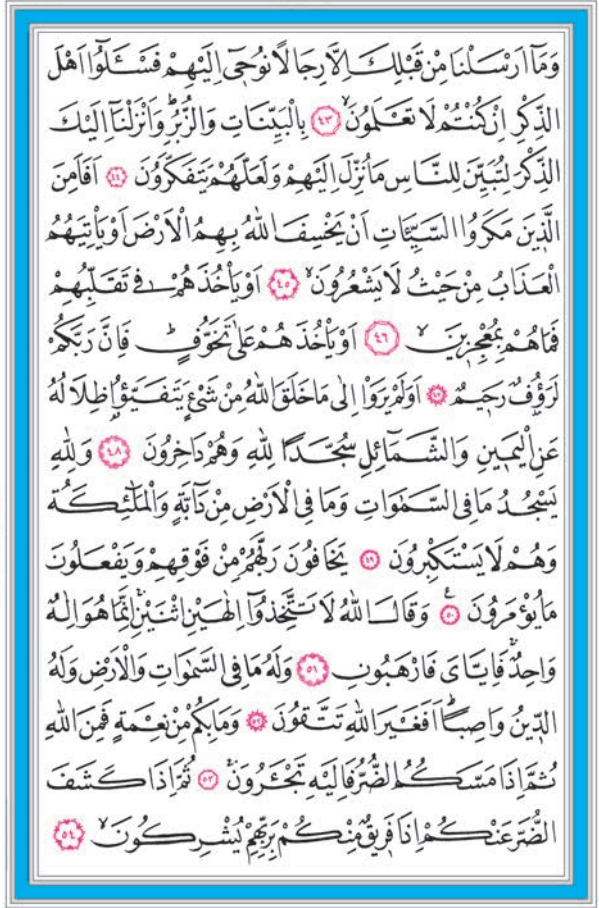 وَمَٓا اَرْسَلْنَا مِنْ قَبْلِكَ اِلَّا رِجَالًا نُوحٖٓي اِلَيْهِمْ فَسْـَٔلُٓوا اَهْلَ
الذِّكْرِ اِنْ كُنْتُمْ لَا تَعْلَمُونَۙ ﴿٤٣﴾ بِالْبَيِّنَاتِ وَالزُّبُرِؕ وَاَنْزَلْنَٓا اِلَيْكَ
الذِّكْرَ لِتُبَيِّنَ لِلنَّاسِ مَا نُزِّلَ اِلَيْهِمْ وَلَعَلَّهُمْ يَتَفَكَّرُونَ ﴿٤٤﴾ اَفَاَمِنَ
الَّذٖينَ مَكَرُوا السَّيِّـَٔاتِ اَنْ يَخْسِفَ اللّٰهُ بِهِمُ الْاَرْضَ اَوْ يَأْتِيَهُمُ
الْعَذَابُ مِنْ حَيْثُ لَا يَشْعُرُونَۙ ﴿٤٥﴾ اَوْ يَأْخُذَهُمْ فٖي تَقَلُّبِهِمْ
فَمَا هُمْ بِمُعْجِزٖينَۙ ﴿٤٦﴾ اَوْ يَأْخُذَهُمْ عَلٰى تَخَوُّفٍؕ فَاِنَّ رَبَّكُمْ
لَرَؤُ۫فٌ رَحٖيمٌ ﴿٤٧﴾ اَوَلَمْ يَرَوْا اِلٰى مَا خَلَقَ اللّٰهُ مِنْ شَيْءٍ يَتَفَيَّؤُ۬ا ظِلَالُهُ
عَنِ الْيَمٖينِ وَالشَّمَٓائِلِ سُجَّدًا لِلّٰهِ وَهُمْ دَاخِرُونَ ﴿٤٨﴾ وَلِلّٰهِ
يَسْجُدُ مَا فِي السَّمٰوَاتِ وَمَا فِي الْاَرْضِ مِنْ دَٓابَّةٍ وَالْمَلٰٓئِكَةُ
وَهُمْ لَا يَسْتَكْبِرُونَ ﴿٤٩﴾ يَخَافُونَ رَبَّهُمْ مِنْ فَوْقِهِمْ وَيَفْعَلُونَ
مَا يُؤْمَرُونَ ﴿٥٠﴾ وَقَالَ اللّٰهُ لَا تَتَّخِذُٓوا اِلٰهَيْنِ اثْنَيْنِۚ اِنَّمَا هُوَ اِلٰهٌ
وَاحِدٌۚ فَاِيَّايَ فَارْهَبُونِ ﴿٥١﴾ وَلَهُ مَا فِي السَّمٰوَاتِ وَالْاَرْضِ وَلَهُ
الدّٖينُ وَاصِبًاؕ اَفَغَيْرَ اللّٰهِ تَتَّقُونَ ﴿٥٢﴾ وَمَا بِكُمْ مِنْ نِعْمَةٍ فَمِنَ اللّٰهِ
ثُمَّ اِذَا مَسَّكُمُ الضُّرُّ فَاِلَيْهِ تَجْـَٔرُونَۚ ﴿٥٣﴾ ثُمَّ اِذَا كَشَفَ
الضُّرَّ عَنْكُمْ اِذَا فَرٖيقٌ مِنْكُمْ بِرَبِّهِمْ يُشْرِكُونَۙ ﴿٥٤﴾